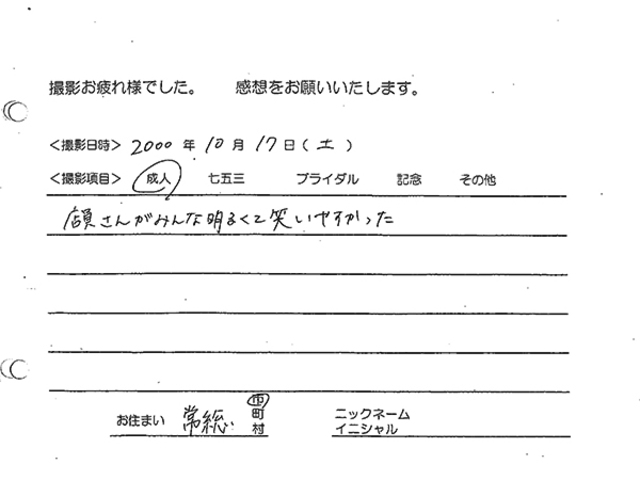 撮影お疲れ様でした。 感想をお願いいたします。
<撮影日時> 2000 年 10 月 17 日(土)
<撮影項目> 成人 七五三 ブライダル 記念 その他
店員さんがみんな明るくて笑いやすかった
お住まい 常総 市 町 村
ニックネーム
イニシャル